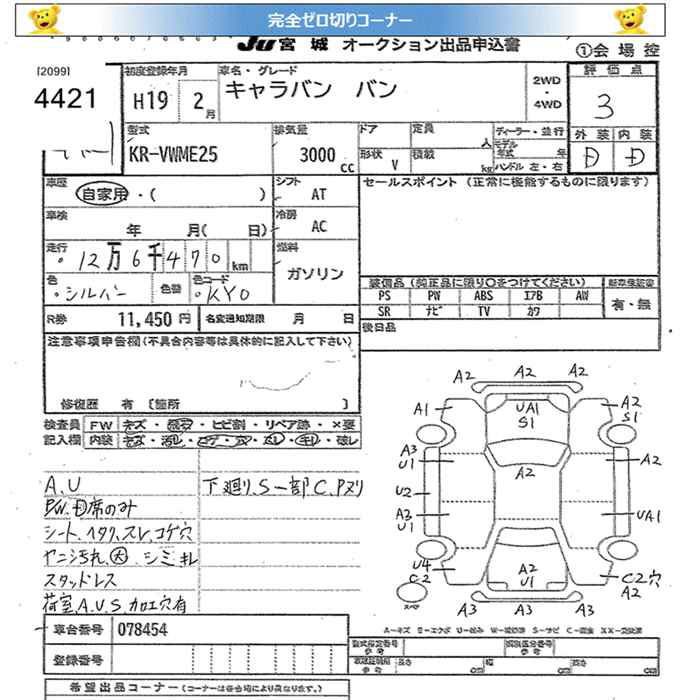 完全ゼロ切りコーナー
JU宮城 オークション出品申込書
①会場控
[2099]
4421
初度登録年月 H19 2月
車名・グレード キャラバン バン
2WD・4WD
評価点 3
外装 D 内装 D
型式 KR-VWME25
排気量 3000cc
ドア 形状 V
定員 人
積載 kg
ディーラー・並行
モデル年式 年
ハンドル 左・右
車歴 自家用・( )
シフト AT
セールスポイント (正常に機能するものに限ります)
車検 年 月( 日)
冷房 AC
走行 12万6千470km
燃料 ガソリン
色 シルバー 色替 色コード KY0
装備品 (純正品に限り○をつけてください)
PS PW ABS エアB AW
SR ナビ TV カワ
有・無
R券 11,450円
名変通知期限 月 日
後日品
注意事項申告欄(不具合内容等は具体的に記入して下さい)
修復歴 有 [箇所 ]
検査員記入欄
FW キズ・ ・ヒビ割・リペア跡・×要
内装 キズ・汚レ・コゲ・穴・スレ・キレ・破レ
A.U
P.W. 席のみ
シート、ヘタリ、スレ、コゲ穴
ヤニ汚れ、大 シミ キレ
スタッドレス
荷室A.U.S.加工穴有
下廻り、S一部C.Pヌリ
A2 A2 A2
A1 UA1 S1 A2 S1
A3 U1 A2 A2
U2
A3 U1 UA1
U4 C2 A2 U1 C2穴 A2
スペア A3 A3 A3
車台番号 078454
登録番号
型式指定番号 参考
類別区分番号 参考
長さ cm 幅 cm 高さ cm
希望出品コーナー(コーナーは各会場により異なります)